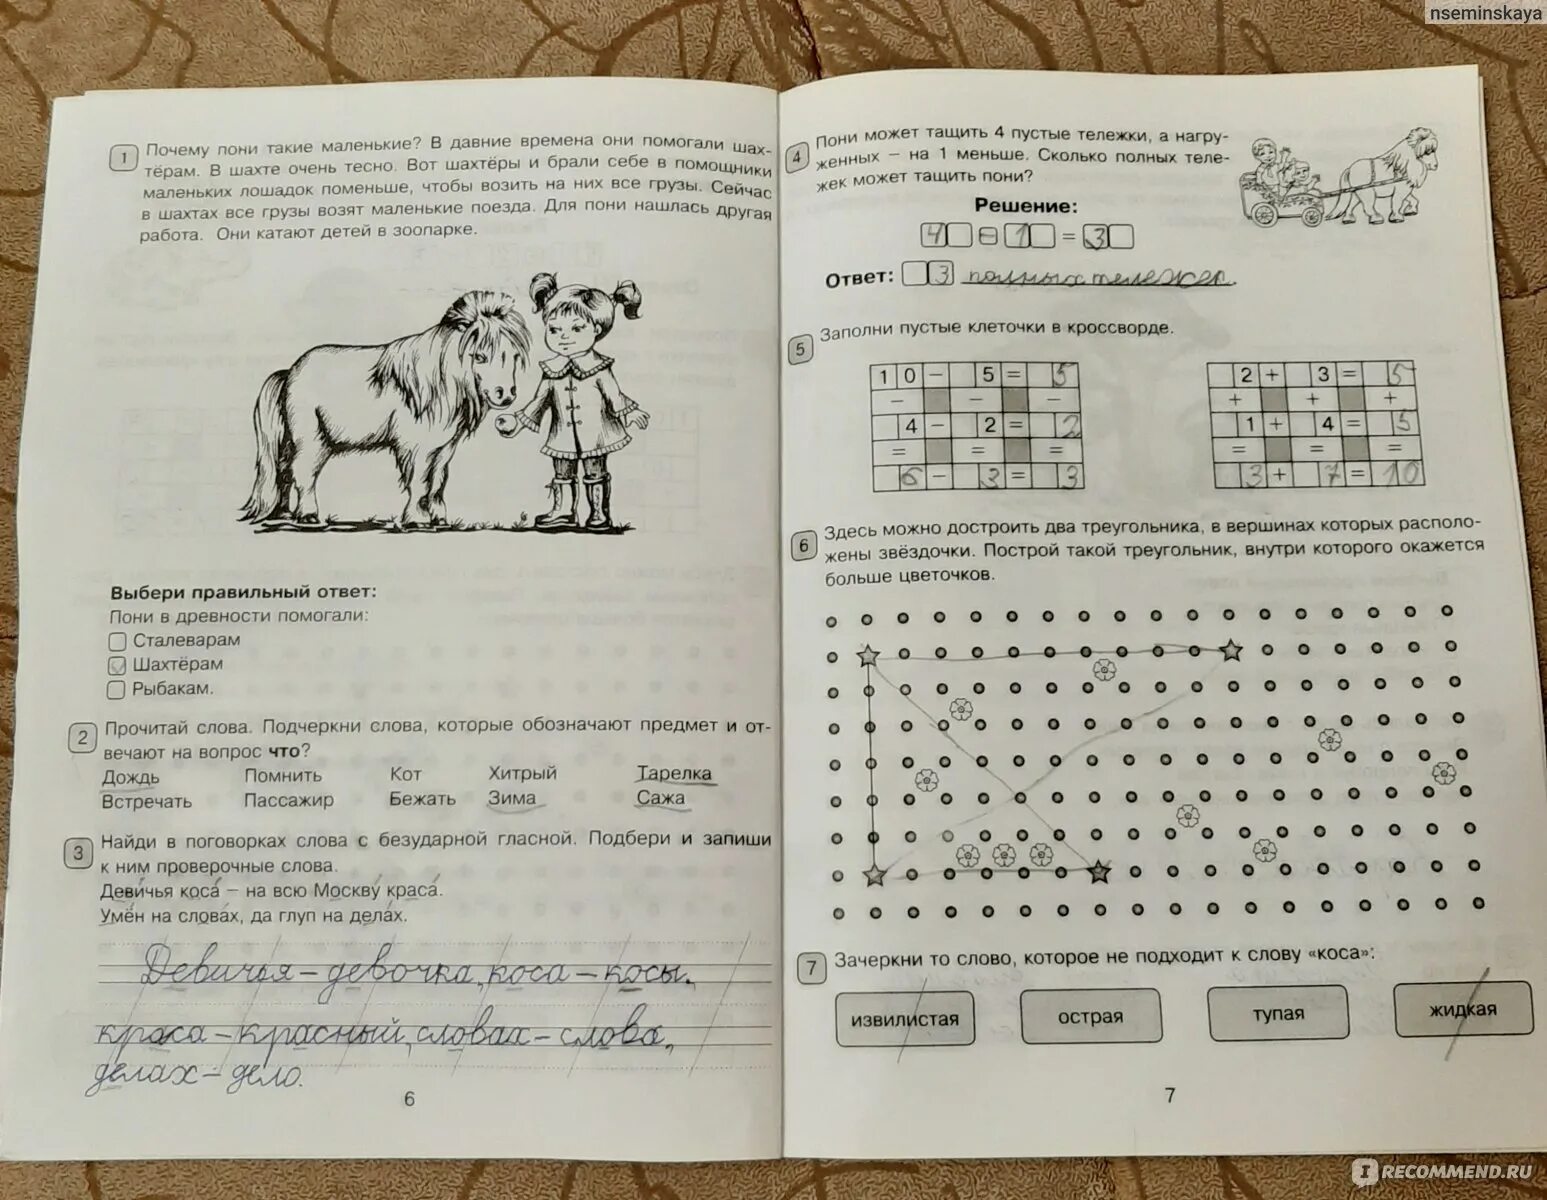 nseminskaya
1
Почему пони такие маленькие? В давние времена они помогали шах-
тёрам. В шахте очень тесно. Вот шахтёры и брали себе в помощники
маленьких лошадок поменьше, чтобы возить на них все грузы. Сейчас
в шахтах все грузы возят маленькие поезда. Для пони нашлась другая
работа. Они катают детей в зоопарке.
Выбери правильный ответ:
Пони в древности помогали:
Сталеварам
Шахтёрам
Рыбакам.
2
Прочитай слова. Подчеркни слова, которые обозначают предмет и от-
вечают на вопрос что?
Дождь Помнить Кот Хитрый Тарелка
Встречать Пассажир Бежать Зима Сажа
3
Найди в поговорках слова с безударной гласной. Подбери и запиши
к ним проверочные слова.
Деви́чья коса́ – на всю Москву́ краса́.
Умён на слова́х, да глуп на дела́х.
Девичья – девочка, коса – косы,
краса – красный, словах – слово,
делах – дело.
6
4
Пони может тащить 4 пустые тележки, а нагру-
женных – на 1 меньше. Сколько полных теле-
жек может тащить пони?
Решение:
4 – 1 = 3
Ответ: 3 полных тележек.
5
Заполни пустые клеточки в кроссворде.
10 – 5 = 5
– – –
4 – 2 = 2
= = =
6 – 3 = 3
2 + 3 = 5
+ + +
1 + 4 = 5
= = =
3 + 7 = 10
6
Здесь можно достроить два треугольника, в вершинах которых располо-
жены звёздочки. Построй такой треугольник, внутри которого окажется
больше цветочков.
7
Зачеркни то слово, которое не подходит к слову «коса»:
извилистая острая тупая жидкая
7
IRECOMMEND.RU